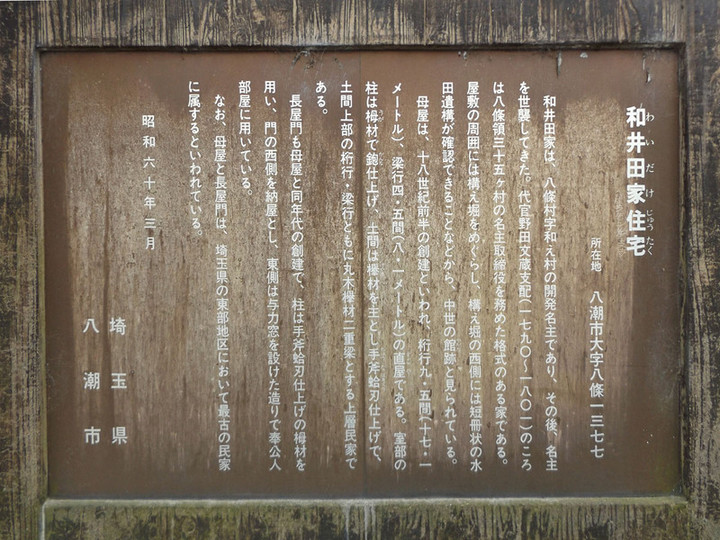 和井田家住宅
わいだけじゅうたく
所在地　八潮市大字八條一三七七
和井田家は、八條村字和え村の開発名主であり、その後、名主
を世襲してきた。代官野田文蔵支配（一七九〇〜一八〇一）のころ
は八條領三十五ヶ村の名主取締役を務めた格式のある家である。
屋敷の周囲には構え堀をめぐらし、構え堀の西側には短冊状の水
田遺構が確認できることなどから、中世の館跡と見られている。
母屋は、十八世紀前半の創建といわれ、桁行九・五間（十七・一
メートル）、梁行四・五間（八・一メートル）の直屋である。室部の
柱は栂材で鉋仕上げ、土間は欅材を主とし手斧蛤刃仕上げで、
土間上部の桁行・梁行ともに丸木欅材二重梁とする上層民家で
ある。
長屋門も母屋と同年代の創建で、柱は手斧蛤刃仕上げの栂材を
用い、門の西側を納屋とし、東側は与力窓を設けた造りで奉公人
部屋に用いている。
なお、母屋と長屋門は、埼玉県の東部地区において最古の民家
に属するといわれている。
昭和六十年三月
埼玉県
八潮市